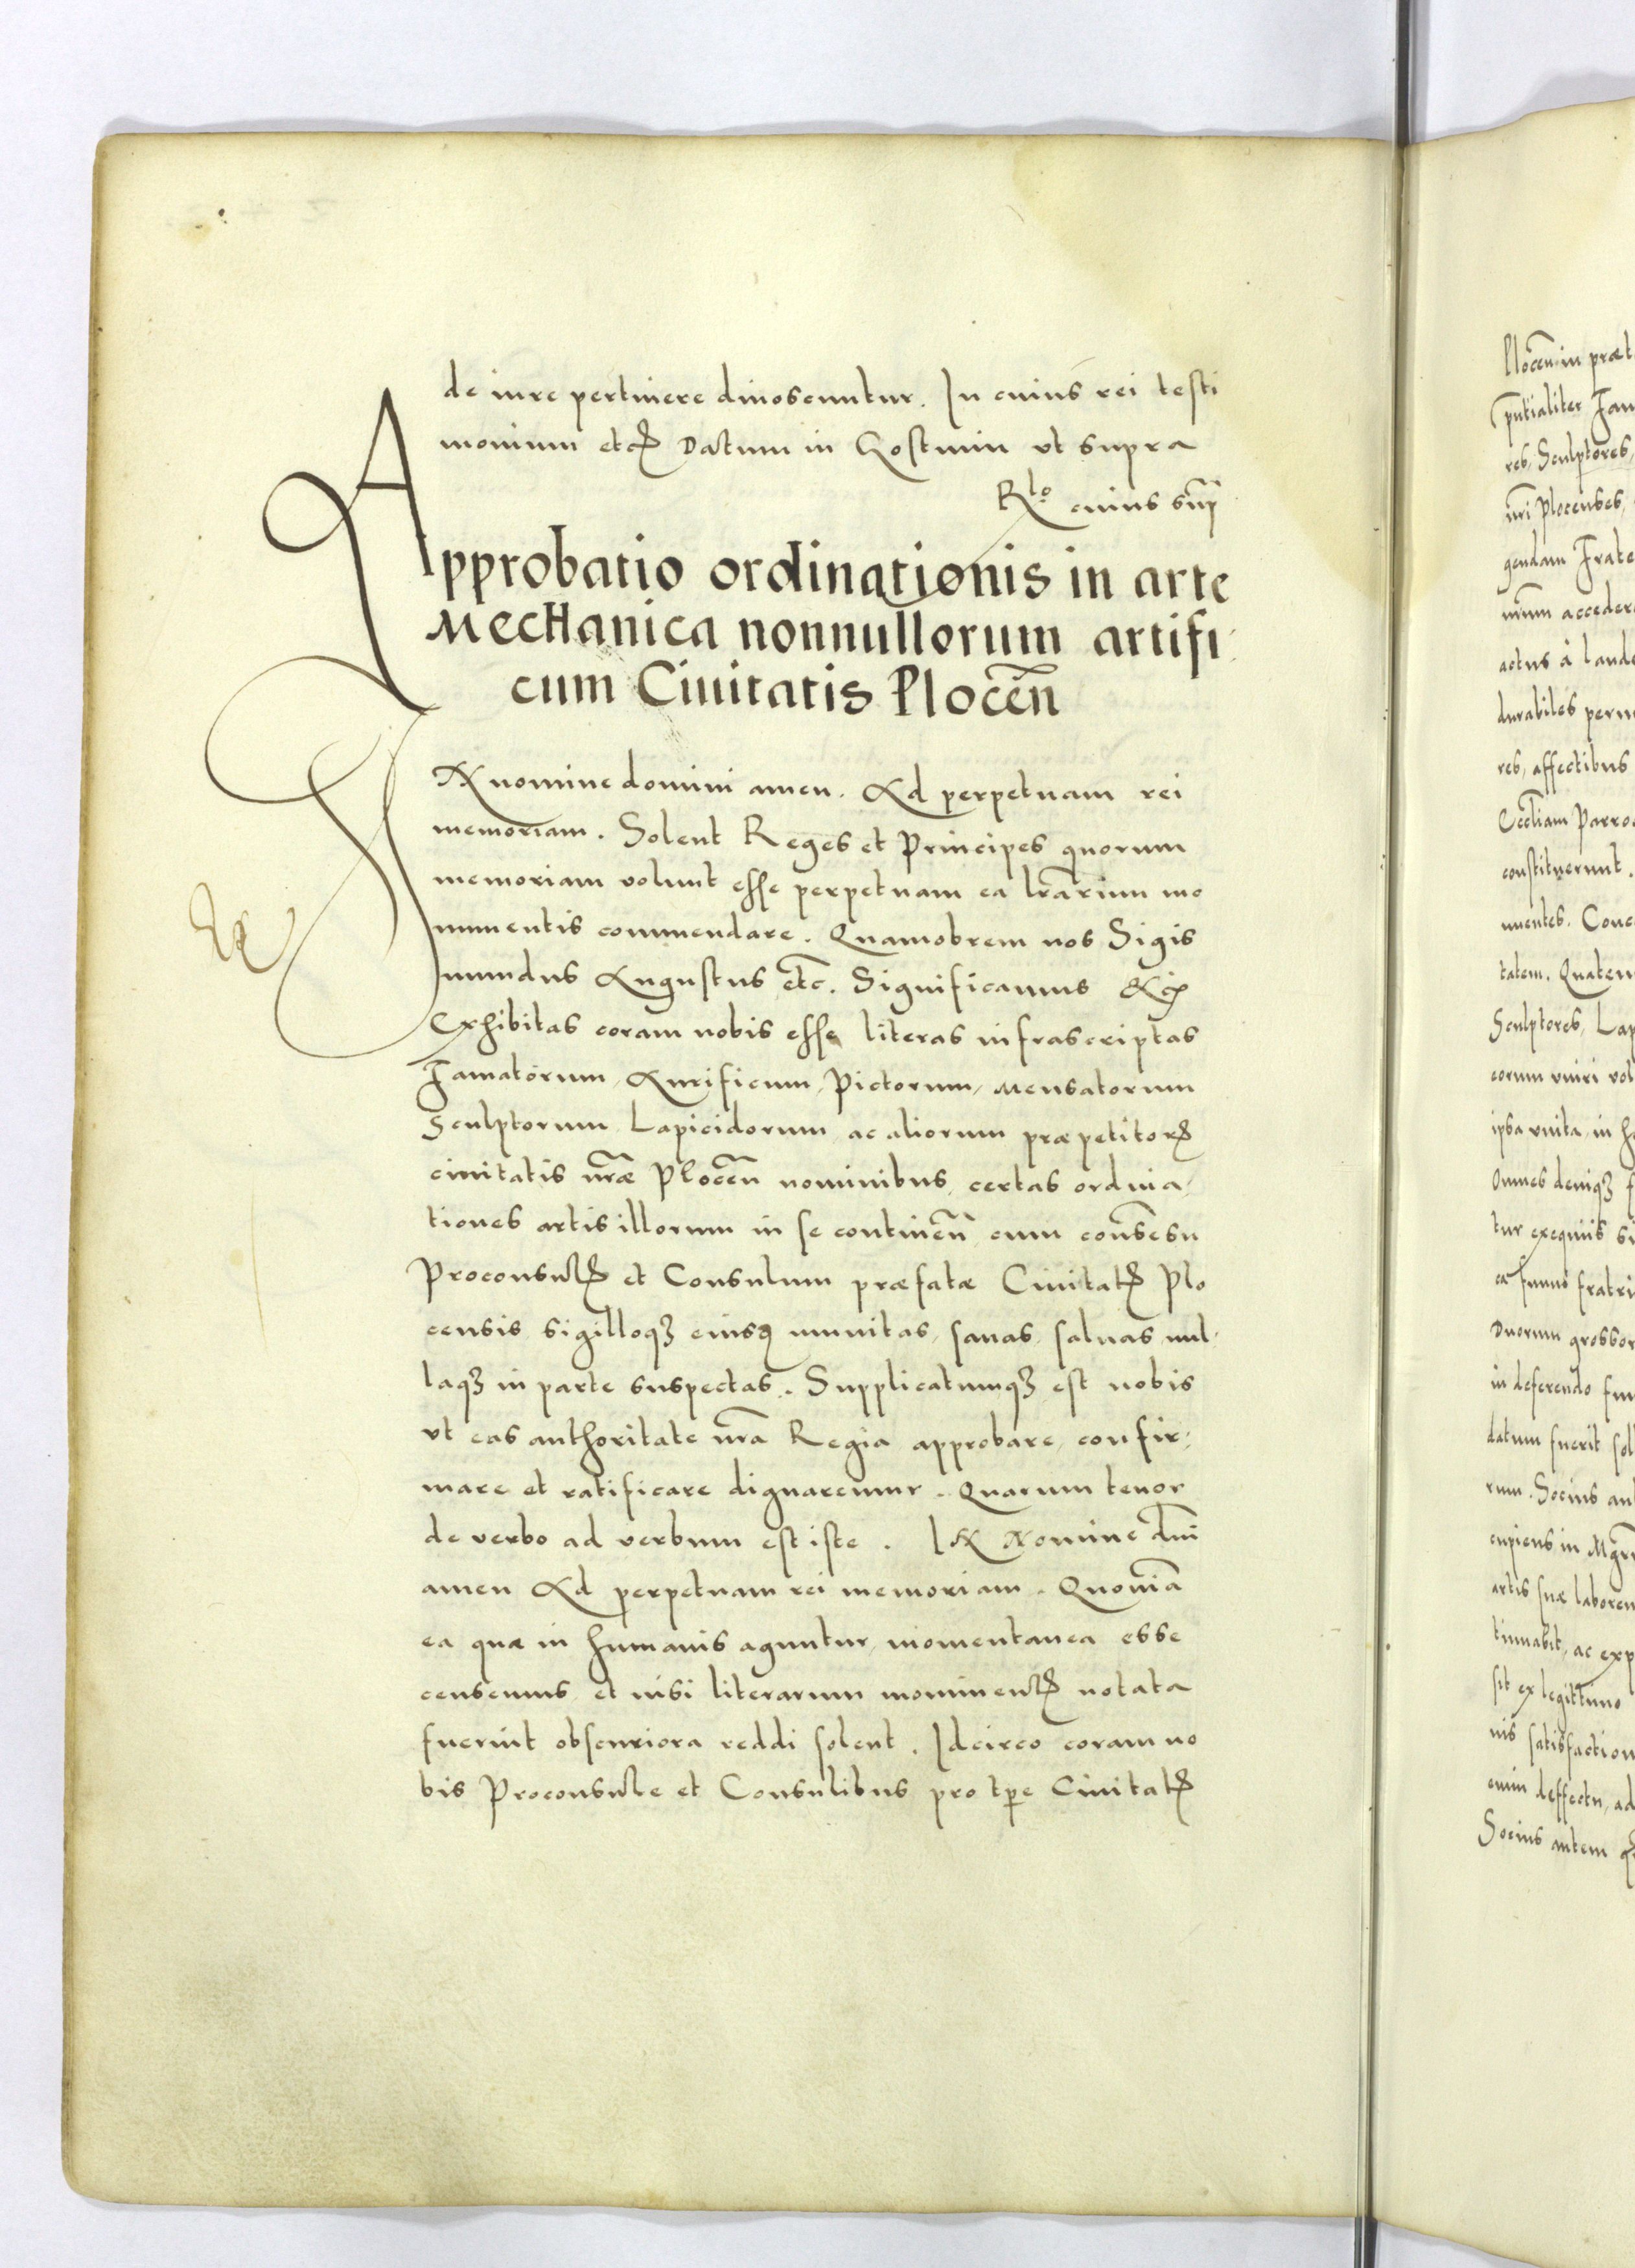 de iure pertinere dinoscuntur. In cuius rei testi
monium etc Datum in Gostinin ut supra
Rlo cuius sup
Approbatio ordinationis in arte
Mechanica nonnullorum artifi
cum Ciuitatis Plocen
IN nomine domini amen. Ad perpetuam rei
memoriam. Solent Reges et Principes quorum
memoriam volunt esse perpetuam ea lrarum mo
numentis commendare. Quamobrem nos Sigis
mundus Augustus etc. Significamus &c
Exhibitas coram nobis esse literas infrascriptas
Famatorum, Aurificum, Pictorum, Mensatorum
Sculptorum Lapicidorum ac aliorum præpetitorum
ciuitatis nræ Plocen nominibus, certas ordina,
tiones artis illorum in se continen cum consensu
Proconsulis et Consulum præfatæ Ciuitatis Plo
censis, sigilloqꝫ eiusdem munitas, sanas, saluas nul,
laqꝫ in parte suspectas. Supplicatumqꝫ est nobis
vt eas authoritate nra Regia approbare, confir,
mare et ratificare dignaremur. Quarum tenor
de verbo ad verbum est iste. IN Nomine dni
amen Ad perpetuam rei memoriam. Quonia
ea quæ in humanis aguntur, momentanea esse
censemus, et nisi literarum monimentis notata
fuerint obscuriora reddi solent. Idcirco coram no
bis Proconsule et Consulibus pro tpe Ciuitatis
Plocen in præt
pntialiter Fam
res, Sculptores,
nri Plocenses,
gendam Frate
mum accedere
actus à laude
durabiles perm
res, affectibus
Eccliam Parro
constituerunt.
nuentes. Conc
tatem. Quaten
Sculptores, Lap
eorum vniri vol
ipsa vnita, in h
Omnes deniqꝫ f
tur exequiis si
ca funus fratri
Duorum grossor
in deferendo fun
datum fuerit sol
rum. Socius aut
cupiens in Mgr
artis suæ laborem
timabit, ac exp
sit ex legittimo
nis satisfaction
enim deffectu, ad
Socius autem